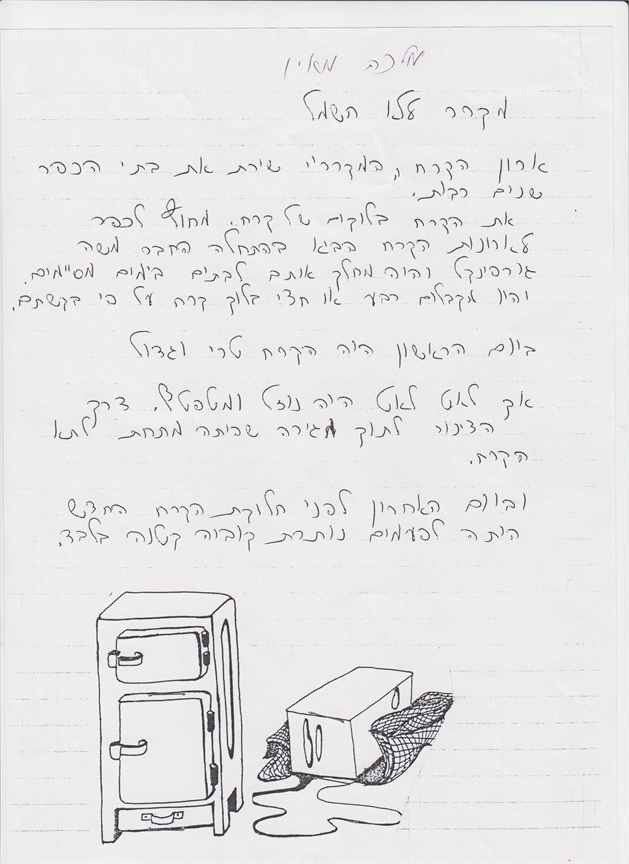 מלכה מאין
מקרר ללא חשמל
ארון הקרח ,,המקרר" שירת את בתי הכפר
שנים רבות.
את הקרח בלוקים של קרח. מחוץ לכפר
לארונות הקרח הביא בהתחלה החבר משה
גורפינקל והיה מחלק אותם לבתים בימים מסויימים.
והיו מקבלים רבע או חצי בלוק קרח על פי בקשתם.
ביום הראשון היה הקרח טרי וגדול
אך לאט לאט היה נוזל ומטפטף. דרך
הצינור לתוך מגירה שהיתה מתחת לתא
הקרח.
וביום האחרון לפני חלוקת הקרח החדש
היתה לפעמים נותרת קוביה קטנה בלבד.